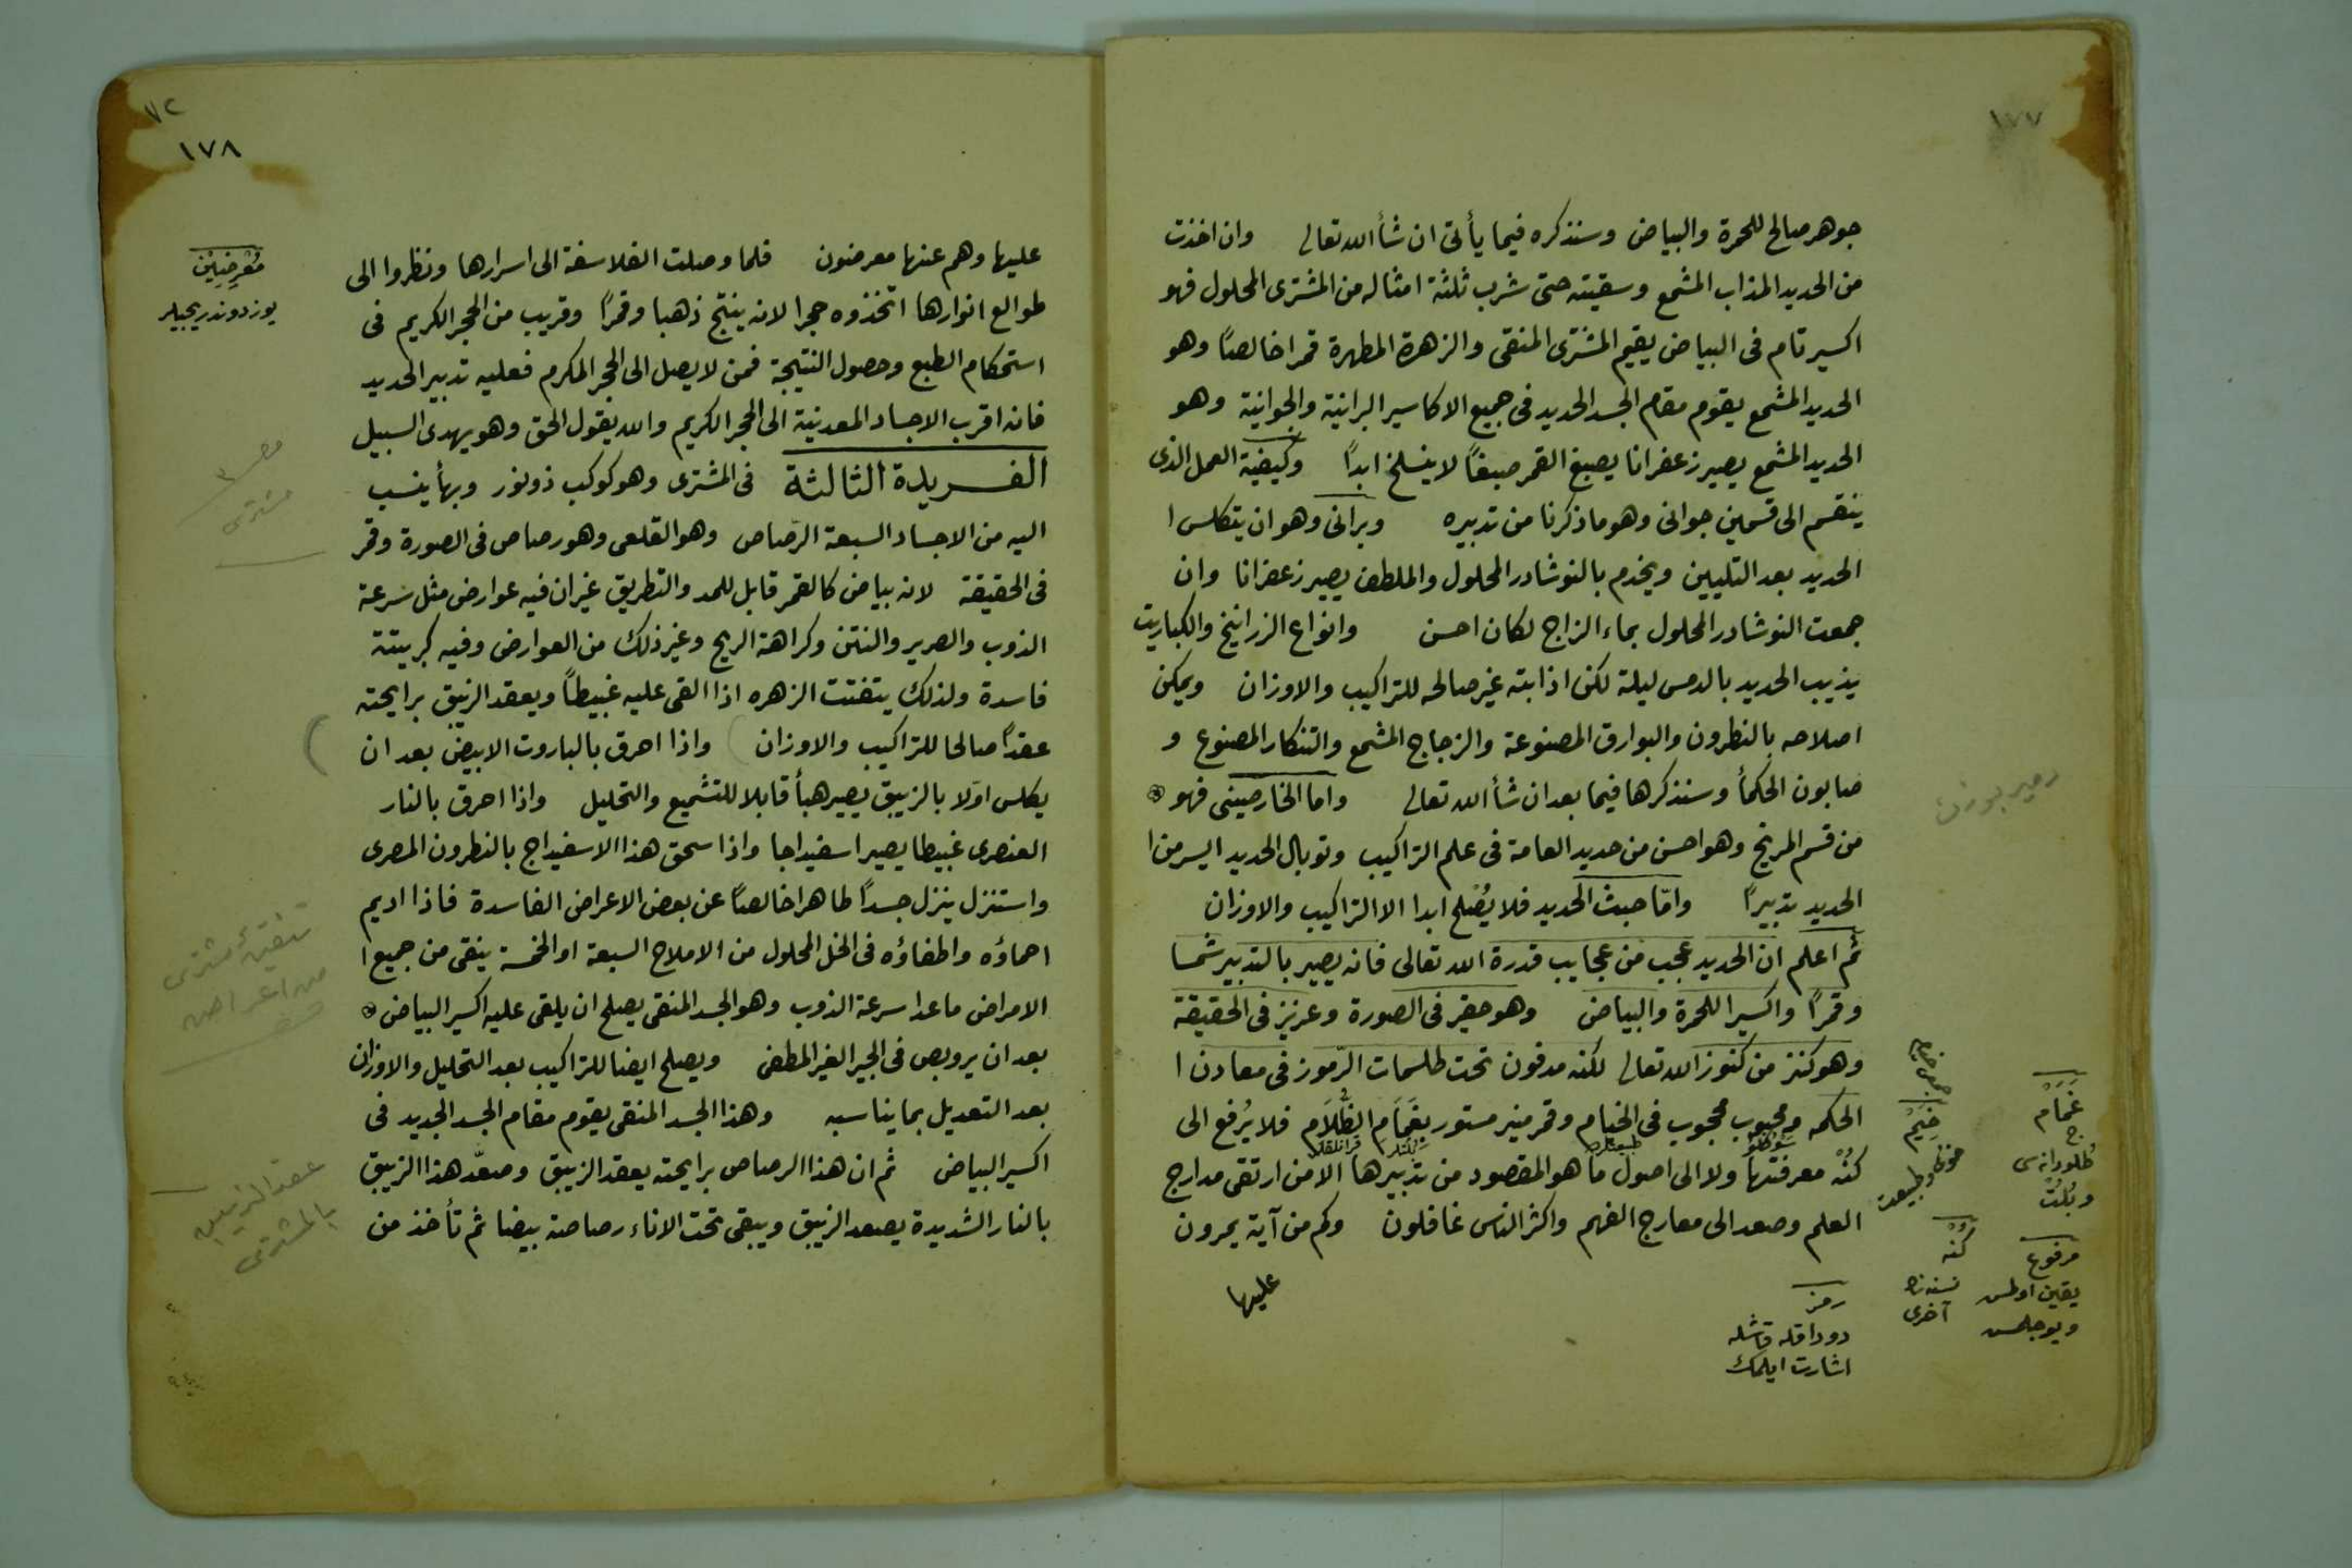 ١٧٧
جوهر صالح للحمرة والبياض وسنذكره فيما يأتى ان شأ الله تعالى وان اخذت
من الحديد المذاب المشمع وسقيته حتى شرب ثلثة امثاله من المشترى المحلول فهو
اكسير تام فى البياض يقيم المشترى المنقى والزهرة المطهرة قمرا خالصًا وهو
الحديد المشمع يقوم مقام الجسد الحديد فى جميع الاكاسير البرانية والجوانية وهو
الحديد المشمع يصير زعفرانا يصبغ القمر صبغًا لا ينسلخ ابدًا وكيفية العمل الذى
ينقسم الى قسمين جوانى وهو ما ذكرنا من تدبيره وبرانى وهو ان يتكلس ا
الحديد بعد التليين ويخدم بالنوشادر المحلول والملطف يصير زعفرانا وان
جمعت النوشادر المحلول بماء الزاج لكان احسن وانواع الزرانيخ والكباريت
يذيب الحديد بالدمس ليلة لكن اذابته غير صالحه للتراكيب والاوزان ويمكن
اصلاحه بالنطرون والبوارق المصنوعة والزجاج المشمع والتنكار المصنوع و
صابون الحكمأ وسنذكرها فيما بعد ان شأ الله تعالى واما الخارصينى فهو
من قسم المريخ وهو احسن من حديد العامة فى علم التراكيب وتوبال الحديد ايسر من ا
الحديد تدبيرًا وامّا خبث الحديد فلا يُصْلح ابدا الا التراكيب والاوزان
ثم اعلم ان الحديد عجب من عجايب قدرة الله تعالى فانه يصير بالتدبير شمسا
وقمرًا واكسيرا للحمرة والبياض وهو حقير فى الصورة وعزيز فى الحقيقة
وهو كنز من كنوز الله تعالى لكنه مدفون تحت طلسمات الرّموز فى معادن ا
الحكمه ومحبوب محجوب فى الخيام وقمر منير مستور بغَمَام الظّلَام فلا يُرفع الى
كنْه معرفتها ولا الى اصول ما هو المقصود من تدبيرها الا من ارتقى مدارج
العلم وصعد الى معارج الفهم واكثر الناس غافلون وكم من آية يمرون
عليها
غَمَام
ج
وبُلُتْ
مرفوع
خِيَمْ
كُنْه
نسنه نك
آخرى
رمز
دوداقله قاشله
اشارت ايلمك
٧٢
١٧٨
عليها وهم عنها معرضون فلما وصلت الفلاسفة الى اسرارها ونظروا الى
طوالع انوارها اتخذوه حجرا لانه ينتج ذهبا وقمرًا وقريب من الحجر الكريم فى
استحكام الطبع وحصول النتيجة فمن لا يصل الى الحجر المكرم فعليه تدبير الحديد
فانه اقرب الاجساد المعدنية الى الحجر الكريم والله يقول الحق وهو يهدى السبيل
الفريدة الثالثة فى المشترى وهو كوكب ذو نور وبهأ ينسب
اليه من الاجساد السبعة الرّصاص وهو القلعى وهو رصاص فى الصورة وقمر
فى الحقيقة لانه بياض كالقمر قابل للمد والتطريق غير ان فيه عوارض مثل سرعة
الذوب والصرير والنتن وكراهة الريح وغير ذلك من العوارض وفيه كبريتة
فاسدة ولذلك يتفتت الزهره اذا القى عليه غبيطاً ويعقد الزيبق برايحته
عقدًا صالحا للتراكيب والاوزان واذا احرق بالباروت الابيض بعد ان
يكلس اولا بالزيبق يصير هبأ قابلا للتشميع والتحليل واذا احرق بالنار
العنصرى غبيطا يصير اسفيداجا واذا سحق هذا الاسفيداج بالنطرون المصرى
واستنزل ينزل جسدًا طاهرا خالصًا عن بعض الاعراض الفاسدة فاذا اديم
احماؤه واطفاؤه فى الخل المحلول من الاملاح السبعة او الخمسة ينقى من جميع ا
الامراض ما عدا سرعة الذوب وهو الجسد المنقى يصلح ان يلقى عليه اكسير البياض
بعد ان يروبص فى الجير الغير المطفى ويصلح ايضا للتراكيب بعد التحليل والاوزان
بعد التعديل بما يناسبه وهذا الجسد المنقى يقوم مقام الجسد الجديد فى
اكسير البياض ثم ان هذا الرصاص برايحته يعقد الزيبق وصعّد هذا الزيبق
بالنار الشديدة يصعد الزيبق ويبقى تحت الاناء رصاصة بيضا ثم تأخذ من
مُعْرِضِيْن
يوز دوندريجيلر
مشترى
تنقية مشترى
من اعراض
عقد الزيبق
بالمشترى